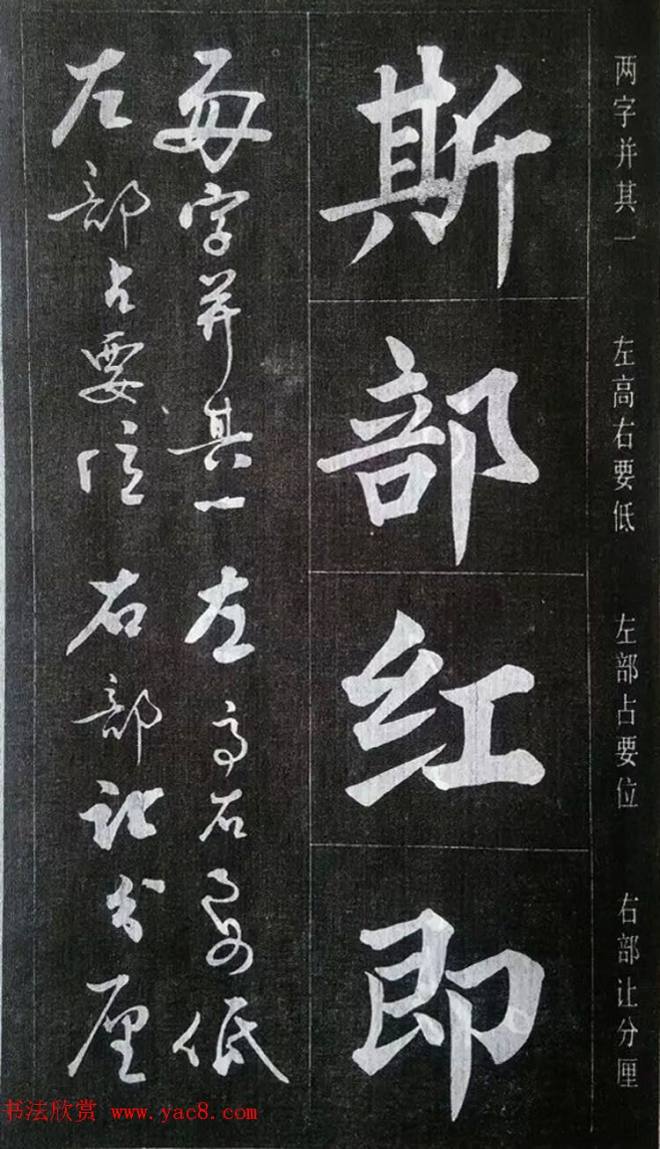 两字并其一 左高右要低 左部占要位 右部让分厘
斯部红即
字并其一 左高右要低
左部占要位 右部让分厘
书法欣赏 www.yac8.com